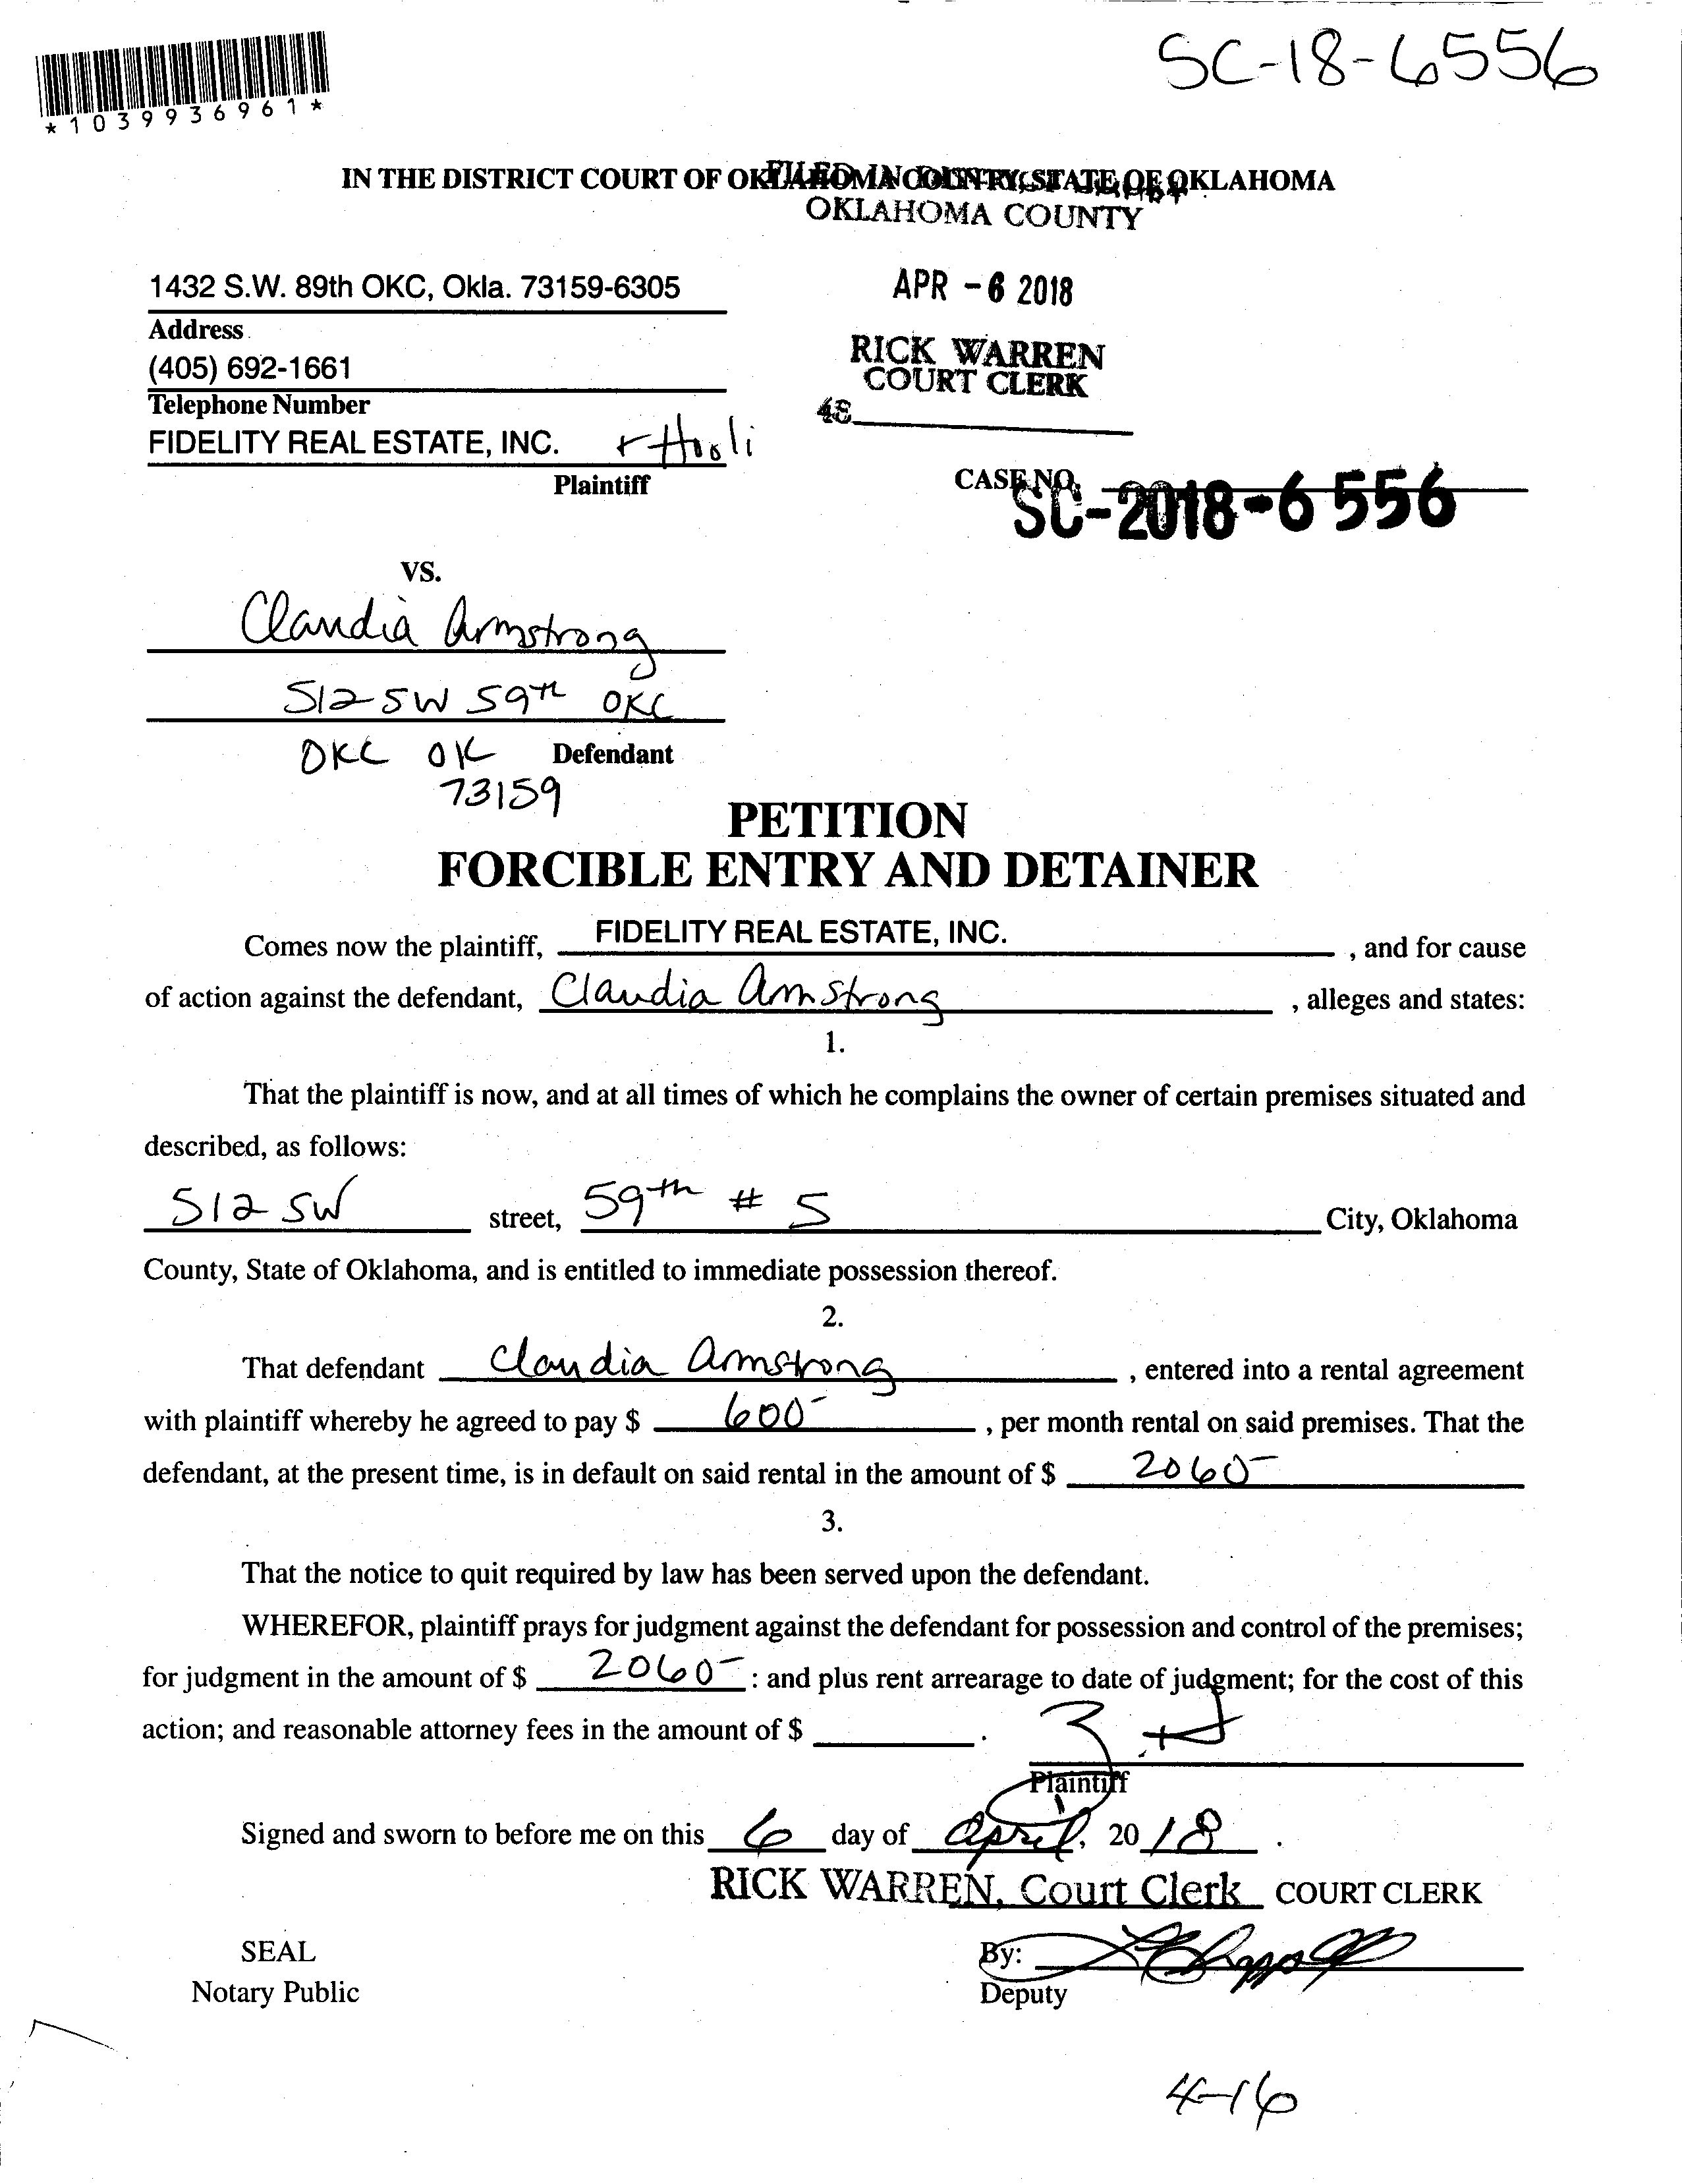 SC-18-6556
*1039936961*
IN THE DISTRICT COURT OF OKLAHOMA COUNTY, STATE OF OKLAHOMA
FILED IN
OKLAHOMA COUNTY
1432 S.W. 89th OKC, Okla. 73159-6305
APR - 6 2018
Address
RICK WARREN
(405) 692-1661
COURT CLERK
Telephone Number
48
FIDELITY REAL ESTATE, INC.
Plaintiff
CASE NO.
SC-2018-6556
VS.
Claudia Armstrong
512 SW 59th OKC
OKC OK Defendant
73159
PETITION
FORCIBLE ENTRY AND DETAINER
Comes now the plaintiff, FIDELITY REAL ESTATE, INC. , and for cause
of action against the defendant, Claudia Armstrong , alleges and states:
1.
That the plaintiff is now, and at all times of which he complains the owner of certain premises situated and
described, as follows:
512 SW street, 59th # 5 City, Oklahoma
County, State of Oklahoma, and is entitled to immediate possession thereof.
2.
That defendant Claudia Armstrong , entered into a rental agreement
with plaintiff whereby he agreed to pay $ 600- , per month rental on said premises. That the
defendant, at the present time, is in default on said rental in the amount of $ 2060-
3.
That the notice to quit required by law has been served upon the defendant.
WHEREFOR, plaintiff prays for judgment against the defendant for possession and control of the premises;
for judgment in the amount of $ 2060- : and plus rent arrearage to date of judgment; for the cost of this
action; and reasonable attorney fees in the amount of $ .
Plaintiff
Signed and sworn to before me on this 6 day of April, 20 18 .
RICK WARREN, Court Clerk COURT CLERK
SEAL
By:
Notary Public
Deputy
4-16